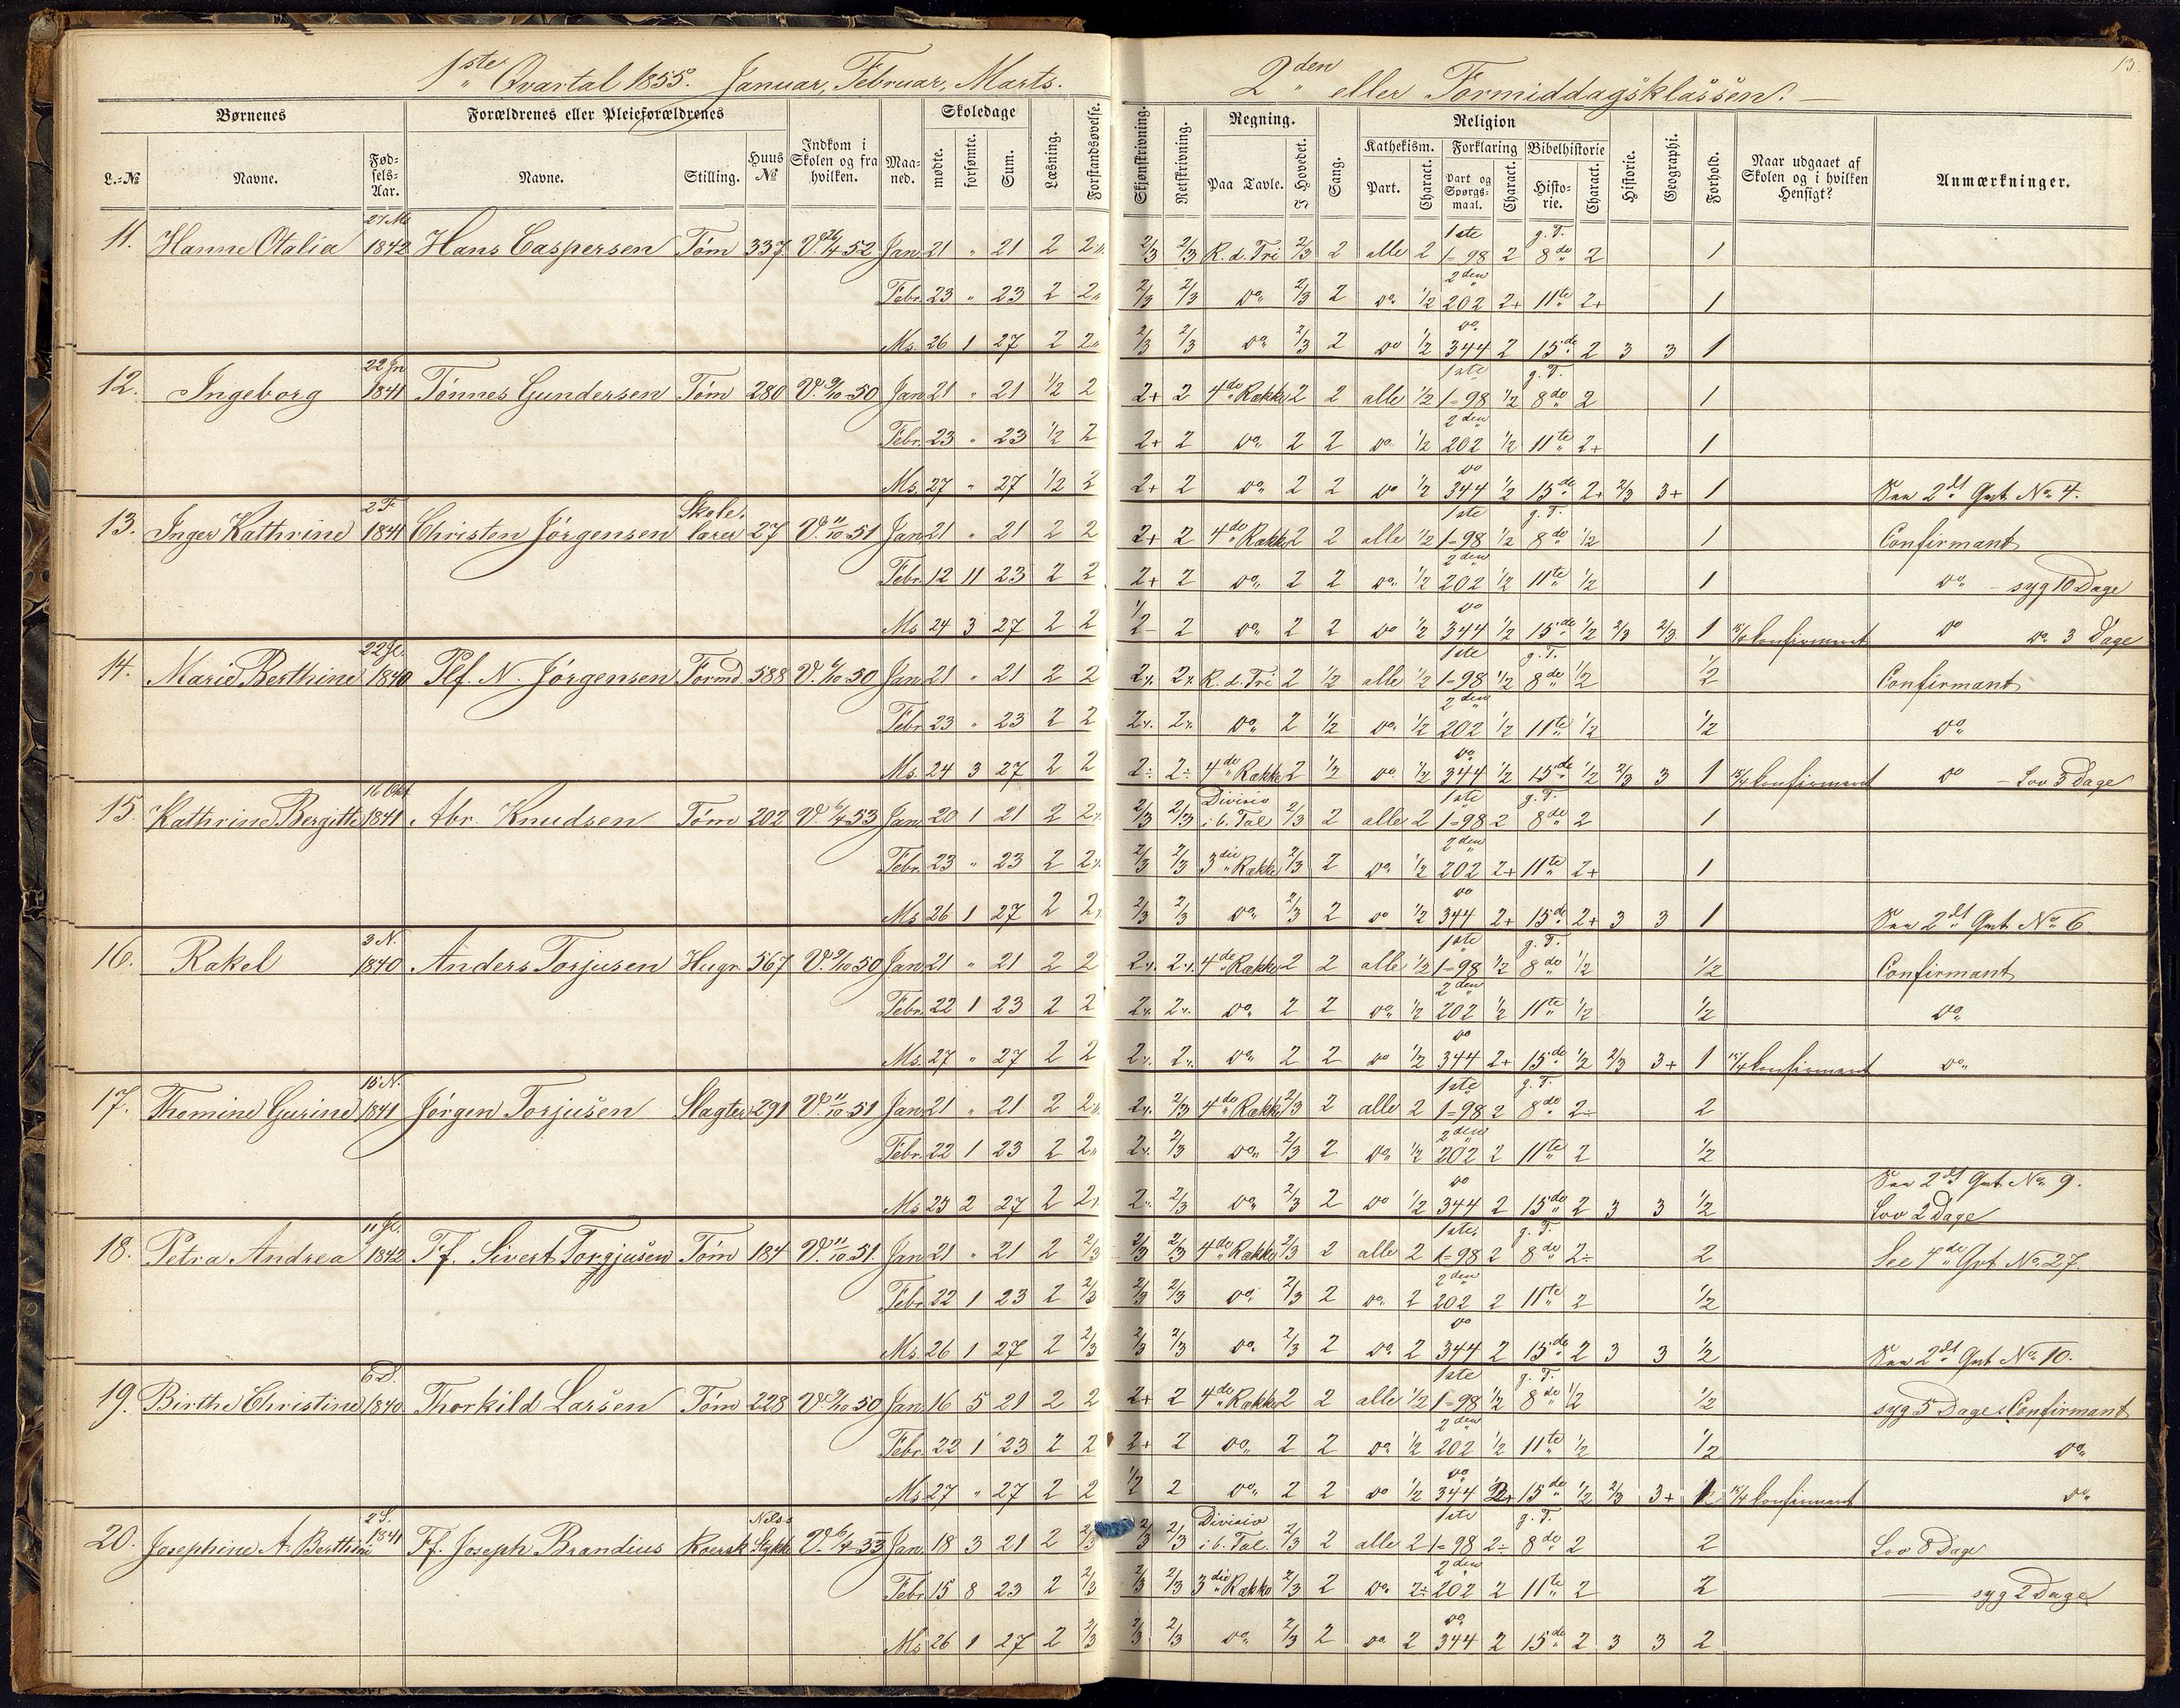 1ste Qvartal 1855. Januar, Februar, Marts.
2den eller Formiddagsklassen. —
13.
Børnenes
Forældrenes eller Pleieforældrenes
Indkom i Skolen og fra hvilken.
Maaned.
Skoledage
Læsning.
Forstandsøvelse.
Skjønskrivning.
Retskrivning.
Regning.
Sang.
Religion
Historie.
Geographi.
Forhold.
Naar udgaaet af Skolen og i hvilken Hensigt?
Anmærkninger.
L.-No
Navne.
Fødsels-Aar.
Navne.
Stilling.
Huus No
mødte.
forsømte.
Sum.
Paa Tavle.
I Hovedet.
Kathekism.
Forklaring
Bibelhistorie
Part.
Charact.
Part og Spørgsmaal.
Charact.
Historie.
Charact.
11. Hanne Otalia 1842 Hans Caspersen Tøm 337 V. 52 Jan 21 " 21 2 2 2/3 2/3 R. d. Tri 2/3 2 alle 2 1ste 1=98 2 g. T. 8de 2 1
Febr. 23 " 23 2 2 2/3 2/3 do 2/3 2 do 1/2 2den 202 2+ 11te 2+ 1
Ms. 26 1 27 2 2 2/3 2/3 do 2/3 2 do 1/2 do 344 2 15de 2 3 3 1
12. Ingeborg 1841 Tønnes Gundersen Tøm 280 V. 50 Jan 21 " 21 1/2 2 2+ 2 4de Række 2 2 alle 1/2 1ste 1=98 1/2 g. T. 8de 2 1
Febr. 23 " 23 1/2 2 2+ 2 do 2 2 do 1/2 2den 202 1/2 11te 2+ 1
Ms. 27 " 27 1/2 2 2+ 2 do 2 2 do 1/2 do 344 1/2 15de 2+ 2/3 3+ 1 2det Qvt No 4.
13. Inger Kathrine 2 F 1841 Christen Jørgensen Skolelærer 27 V. 11/10 51 Jan 21 " 21 2 2 2+ 2 4de Række 2 2 alle 1/2 1ste 1=98 1/2 g. T. 8de 1/2 1 Confirmant
Febr. 12 11 23 2 2 2+ 2 do 2 2 do 1/2 2den 202 1/2 11te 1/2 1 do - syg 10 Dage
Ms. 24 3 27 2 2 1/2 2 do 2 2 do 1/2 do 344 1/2 15de 1/2 2/3 2/3 1 Confirmant do do 3 Dage
14. Marie Berthine 1840 Plf. N. Jørgensen Formd 588 V. 50 Jan 21 " 21 2 2 2 2 R. d. Tri 2 1/2 alle 1/2 1ste 1=98 1/2 g. T. 8de 1/2 1/2 Confirmant
Febr. 23 " 23 2 2 2 2 do 2 1/2 do 1/2 2den 202 1/2 11te 1/2 1/2 do
Ms. 24 3 27 2 2 2÷ 2÷ 4de Række 2 1/2 do 1/2 do 344 1/2 15de 1/2 2/3 3 1 Confirmant do - Lov 3 Dage
15. Kathrine Bergitte 16 Okt 1841 Abr. Knudsen Tøm 202 V. 53 Jan 20 1 21 2 2 2/3 2/3 Divisio i b. Tal 2/3 2 alle 2 1ste 1=98 2 g. T. 8de 2 1
Febr. 23 " 23 2 2 2/3 2/3 3die Række 2/3 2 do 1/2 2den 202 2+ 11te 2+ 1
Ms. 26 1 27 2 2 2/3 2/3 do 2/3 2 do 1/2 do 344 2+ 15de 2+ 3 3 1 2det Qvt No 6
16. Rakel 3 N. 1840 Anders Torjusen Hugr 567 V. 50 Jan 21 " 21 2 2 2 2 4de Række 2 2 alle 1/2 1ste 1=98 1/2 g. T. 8de 1/2 1/2 Confirmant
Febr. 22 1 23 2 2 2 2 do 2 2 do 1/2 2den 202 1/2 11te 1/2 1/2 do
Ms. 27 " 27 2 2 2 2 do 2 2 do 1/2 do 344 2+ 15de 1/2 2/3 3+ 1 Confirmant do
17. Thomine Gurine 15 N. 1841 Jørgen Torjusen Slagter 291 V. 11/10 51 Jan 21 " 21 2 2 2 2/3 4de Række 2/3 2 alle 2 1ste 1=98 2 g. T. 8de 2÷ 2
Febr. 22 1 23 2 2 2 2/3 do 2/3 2 do 1/2 2den 202 2 11te 2 1/2
Ms. 25 2 27 2 2 2 2/3 do 2/3 2 do 1/2 do 344 2 15de 2 3 3 1/2 2det Qvt No 9.
Lov 2 Dage
18. Petra Andrea 1842 Ff. Sivert Torgjusen Tøm 184 V. 11/10 51 Jan 21 " 21 2 2/3 2/3 2/3 4de Række 2/3 2 alle 2 1ste 1=98 2 g. T. 8de 2÷ 2 See 4de Qvt No 27.
Febr. 22 1 23 2 2/3 2/3 2/3 do 2/3 2 do 2 2den 202 2 11te 2 1/2
Ms. 26 1 27 2 2/3 2/3 2/3 do 2/3 2 do 2 do 344 2 15de 2 3 3 1/2 2det Qvt No 10.
19. Birthe Christine 6 D. 1840 Thorkild Larsen Tøm 228 V. 50 Jan 16 5 21 2 2 2+ 2 4de Række 2 2 alle 1/2 1ste 1=98 1/2 g. T. 8de 1/2 1/2 syg 5 Dage. Confirmant
Febr. 22 1 23 2 2 2+ 2 do 2 2 do 1/2 2den 202 1/2 11te 1/2 1/2 do
Ms. 27 " 27 2 2 1/2 2 do 2 2 do 1/2 do 344 2+ 15de 1/2 2/3 3+ 1 Confirmant do
20. Josephine A. Berthine 2 S. 1841 Ff. Joseph Brandius Stykke V. Jan 18 3 21 2 2/3 2/3 2/3 Divisio i b. Tal. 2/3 2 alle 2 1ste 1=98 2÷ g. T. 8de 2 2 Lov 8 Dage
Febr. 15 8 23 2 2/3 2/3 2/3 3die Række 2/3 2 do 2÷ 2den 202 2 11te 2 2 syg 2 Dage
Ms 26 1 27 2 2/3 2/3 2/3 do 2/3 2 do 2 do 344 2 15de 2 3 3 2